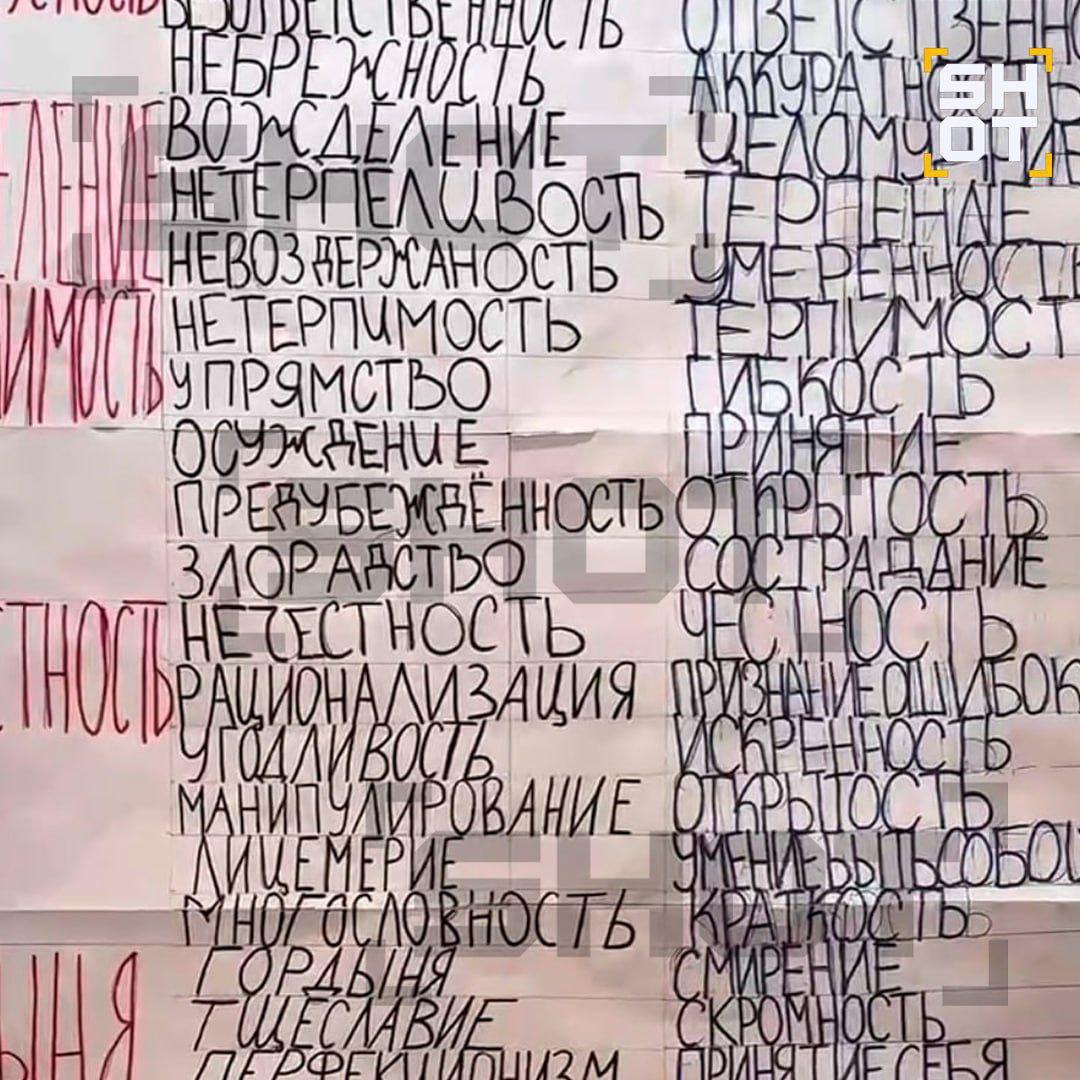 БЕЗОТВЕТСТВЕННОСТЬ ОТВЕТСТВЕННО
НЕБРЕЖНОСТЬ АККУРАТНОСТЬ
SH
OT
ЕЛЕНИЕ ВОЖДЕЛЕНИЕ ЦЕЛОМУДРИЕ
НЕТЕРПЕЛИВОСТЬ ТЕРПЕНИЕ
НЕВОЗДЕРЖАНОСТЬ УМЕРЕННОСТЬ
ИМОСТЬ НЕТЕРПИМОСТЬ ТЕРПИМОСТ
УПРЯМСТВО ГИБКОСТЬ
ОСУЖДЕНИЕ ПРИНЯТИЕ
ПРЕДУБЕЖДЁННОСТЬ ОТКРЫТОСТЬ
ЗЛОРАДСТВО СОСТРАДАНИЕ
ТНОСТЬ НЕЧЕСТНОСТЬ ЧЕСТНОСТЬ
РАЦИОНАЛИЗАЦИЯ ПРИЗНАНИЕ ОШИБОК
УГОДЛИВОСТЬ ИСКРЕННОСТЬ
МАНИПУЛИРОВАНИЕ ОТКРЫТОСТЬ
ЛИЦЕМЕРИЕ УМЕНИЕ БЫТЬ СОБОЙ
МНОГОСЛОВНОСТЬ КРАТКОСТЬ
ЫНЯ ГОРДЫНЯ СМИРЕНИЕ
ТЩЕСЛАВИЕ СКРОМНОСТЬ
ПЕРФЕКЦИОНИЗМ ПРИНЯТИЕ СЕБЯ